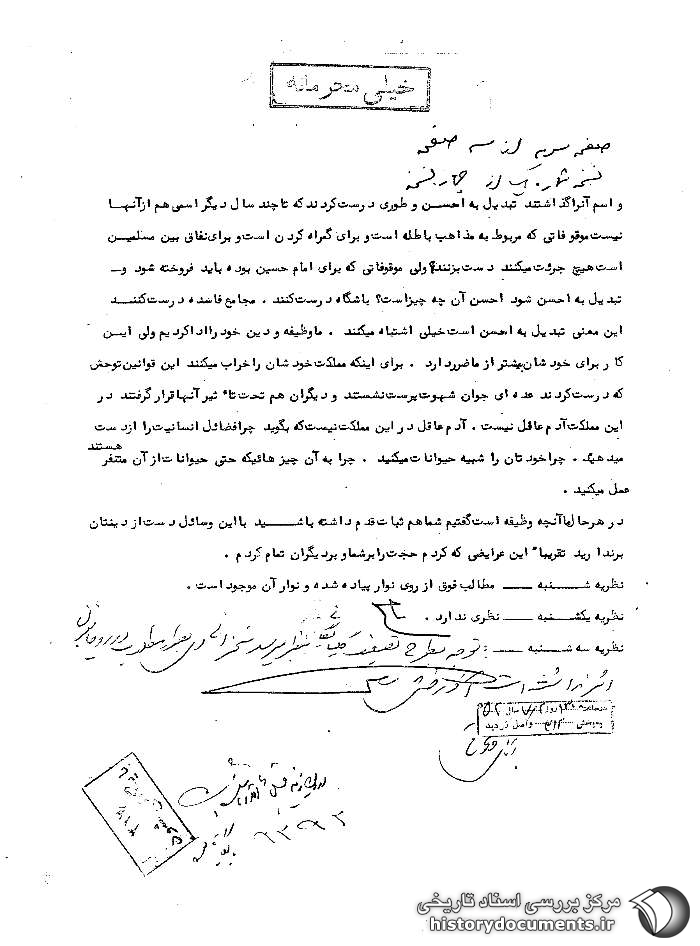 خیلی محرمانه
صفحه سوم از سه صفحه
نسخه شماره یک از چهار نسخه
و اسم آنرا گذاشتند تبدیل به احسن و طوری درست کردند که تا چند سال دیگر اسمی هم از آنها
نیست موقوفاتی که مربوط به مذاهب باطله است و برای گمراه کردن است و برای نفاق بین مسلمین
است هیچ جرئت میکنند دست بزنند؟ ولی موقوفاتی که برای امام حسین بوده باید فروخته شود و
تبدیل به احسن شود احسن آن چه چیز است؟ باشگاه درست کنند . مجامع فاسده درست کنند
این معنی تبدیل به احسن است خیلی اشتباه میکنند . ما وظیفه و دین خود را ادا کردیم ولی این
کار برای خود شان بیشتر از ما ضرر دارد . برای اینکه مملکت خود شان را خراب میکنند این قوانین توحش
که درست کردند عده ای جوان شهوت پرست نشستند و دیگران هم تحت تاٴثیر آنها قرار گرفتند در
این مملکت آدم عاقل نیست . آدم عاقل در این مملکت نیست که بگوید چرا فضائل انسانیت را از دست
میدهید . چرا خود تان را شبیه حیوانات میکنید . چرا به آن چیز هائیکه حتی حیوانات از آن متنفر هستند
عمل میکنید .
در هر حال ما آنچه وظیفه است گفتیم شما هم ثبات قدم داشته باشید با این وسائل دست از دینتان
برندارید تقریباً این عرایضی که کردم حجت را بر شما و بر دیگران تمام کردم .
نظریه شنبه — مطالب فوق از روی نوار پیاده شده و نوار آن موجود است .
نظریه یکشنبه — نظری ندارد .
نظریه سه شنبه — : توجه بطرح
است
واصل گردید
۶۳۹۳
مرکز بررسی اسناد تاریخی
historydocuments.ir